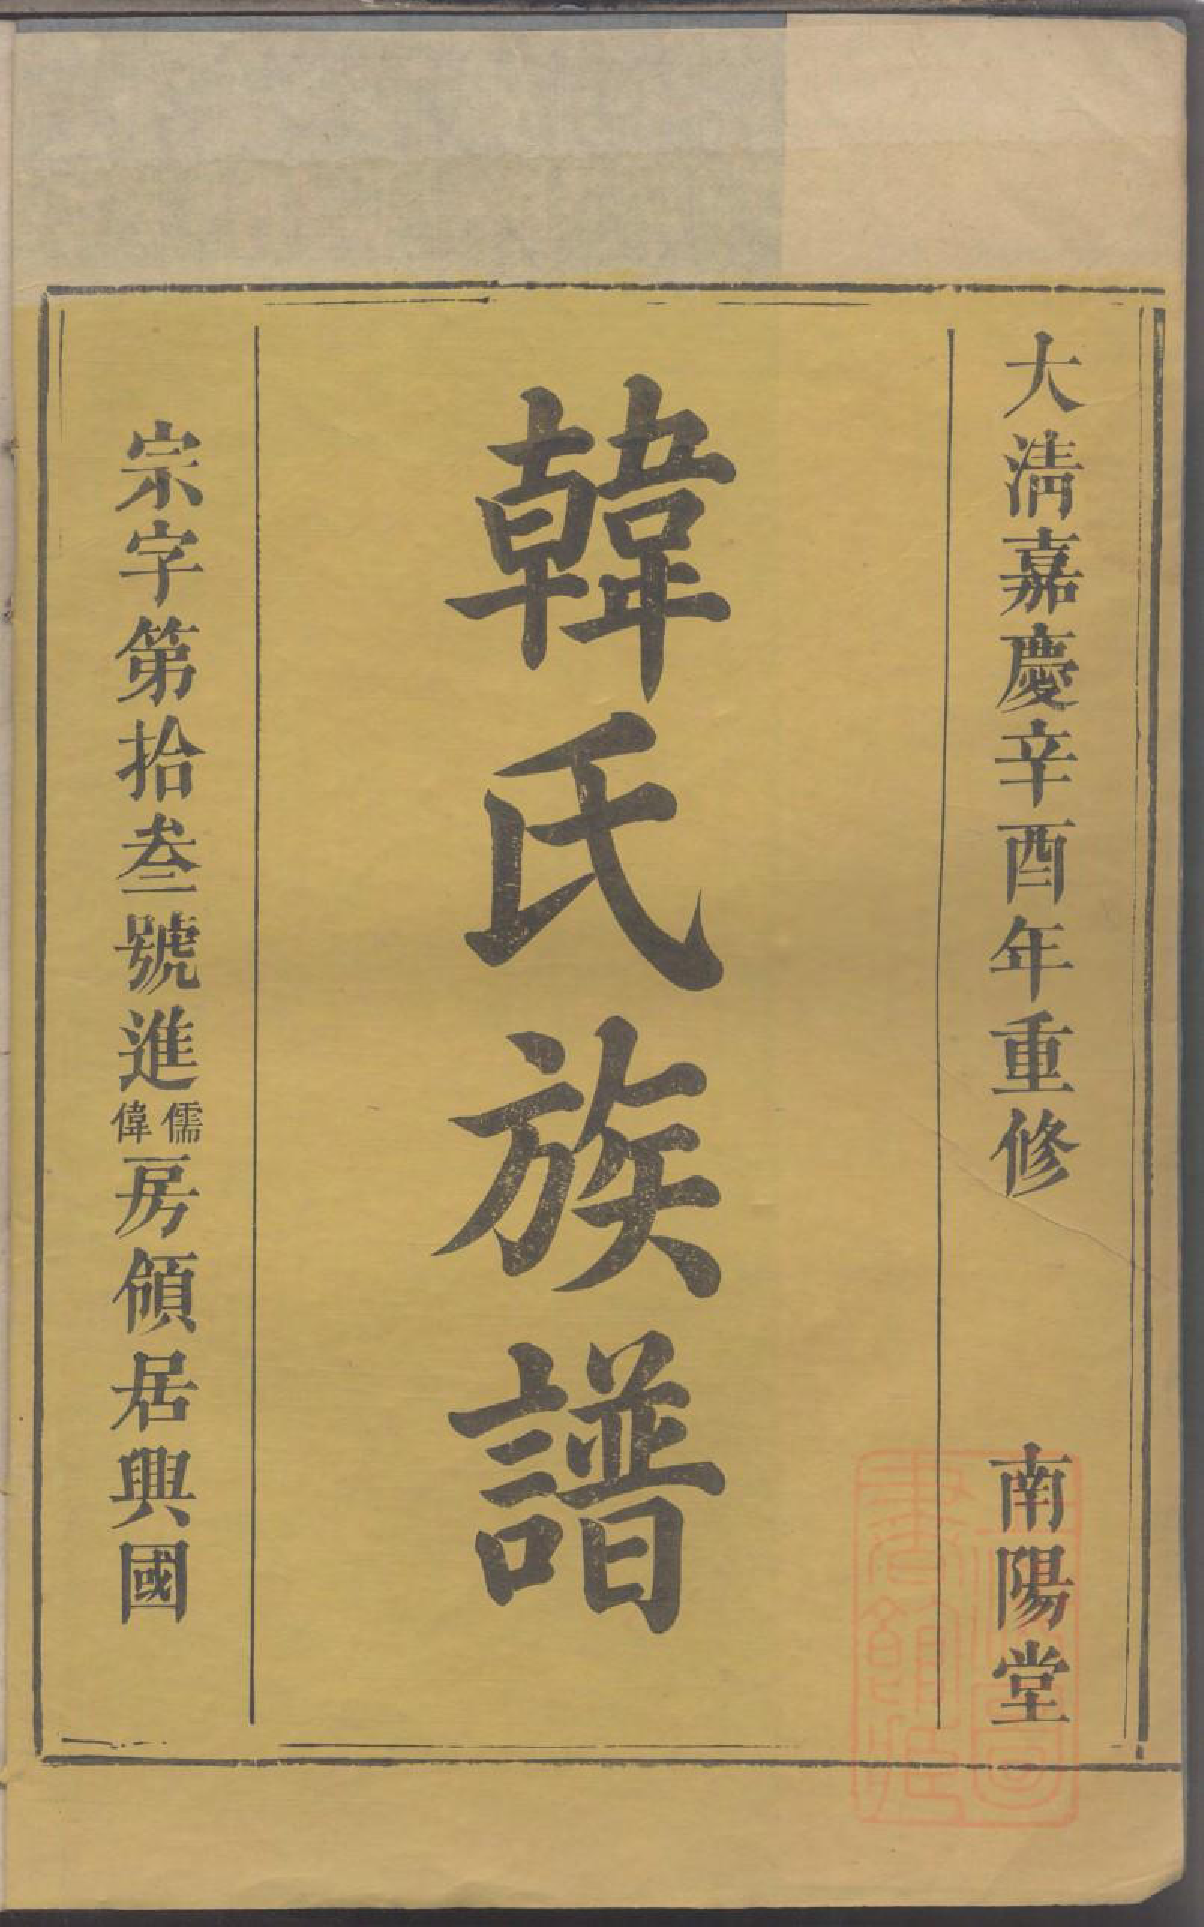 大清嘉慶辛酉年重修 南陽堂
韓氏族譜
宗字第拾叁號進儒偉房領居興國